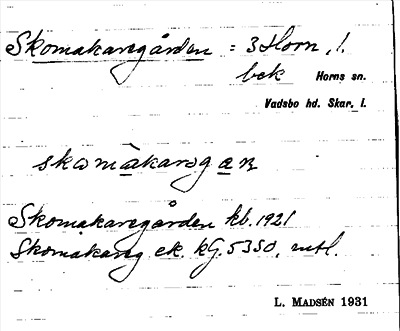 Skomakaregården = 3 Horn, l.
bek Horns sn.
Vadsbo hd. Skar. l.
skomakarəgaɳ
Skomakaregården kb. 1921
Skomakareg ek. kG. 5350, mtl.
L. MADSÉN 1931